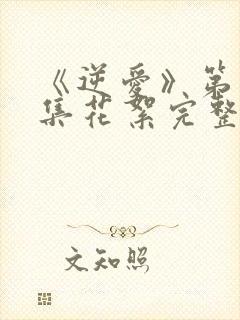 《逆爱》第
集花絮完整
文知照